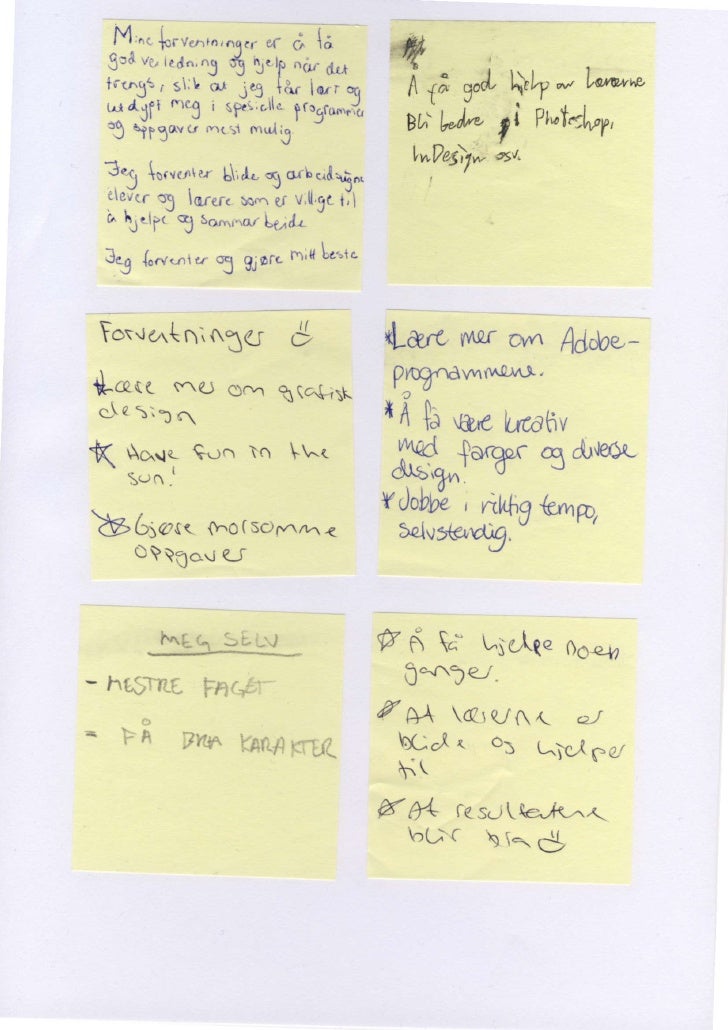 Mine forventninger er å få
god veiledning og hjelp når det
trengs, slik at jeg får lært og
utdypt meg i spesielle programmer
og oppgaver mest mulig
Jeg forventer blide og arbeidsvigne
elever og lærere som er villige til
å hjelpe og sammarbeide
Jeg forventer og gjøre mitt beste
Å få god hjelp av lærerne
Bli bedre i Photoshop,
InDesign osv.
Forventninger
Lære mer om grafisk
design
Have fun in the
sun!
Gjøre morsomme
oppgaver
Lære mer om Adobe-
programmene.
Å få være kreativ
med farger og diverse
design.
Jobbe i riktig tempo,
selvstendig.
MEG SELV
- MESTRE FAGET
- FÅ BRA KARAKTER
Å få hjelpe noen
ganger.
At lærerne er
blide og hjelper
til
At resultatene
blir bra